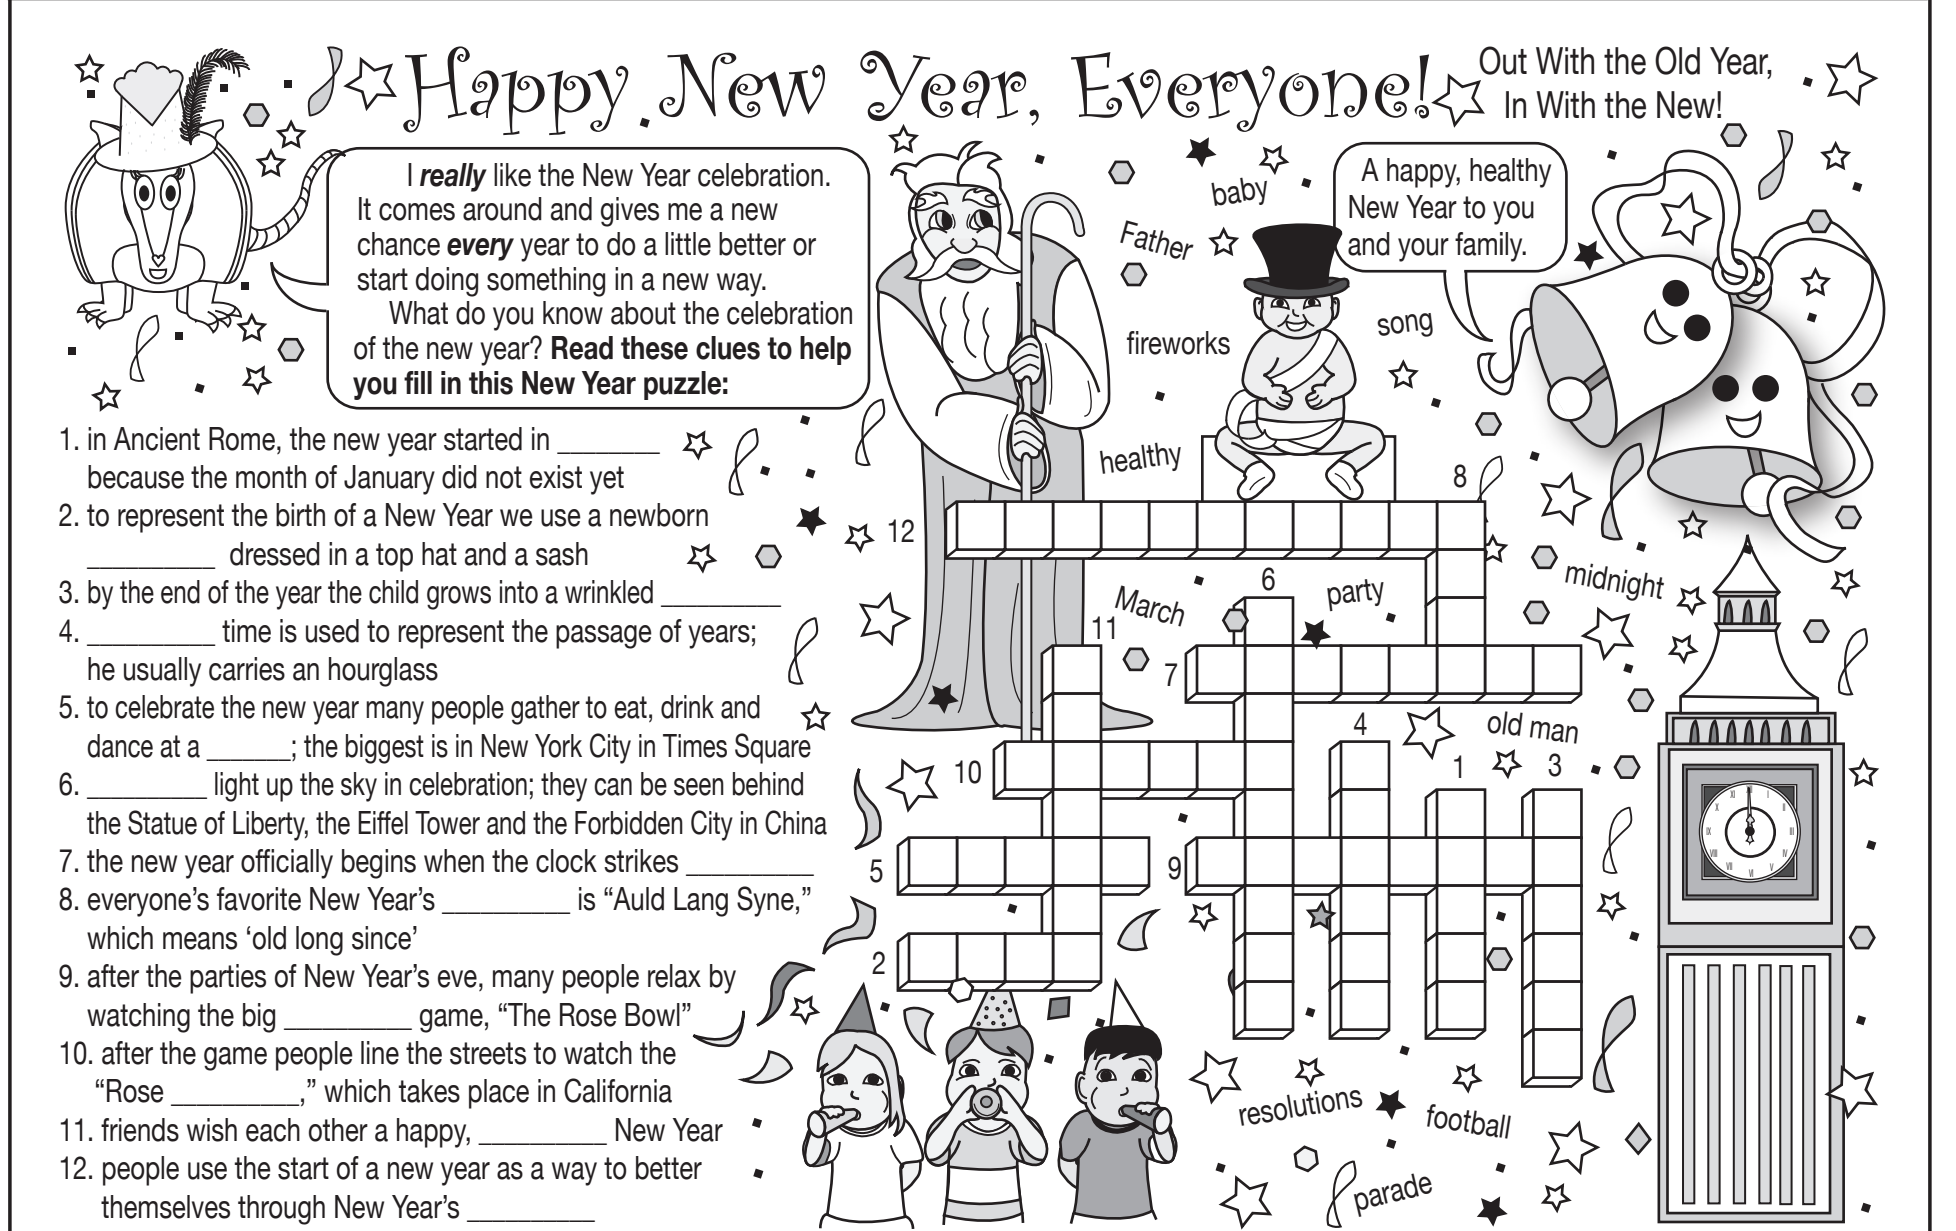 Happy New Year, Everyone!
Out With the Old Year,
In With the New!
I really like the New Year celebration.
It comes around and gives me a new
chance every year to do a little better or
start doing something in a new way.
What do you know about the celebration
of the new year? Read these clues to help
you fill in this New Year puzzle:
A happy, healthy
New Year to you
and your family.
baby
Father
fireworks
song
healthy
1. in Ancient Rome, the new year started in ________
because the month of January did not exist yet
2. to represent the birth of a New Year we use a newborn
__________ dressed in a top hat and a sash
3. by the end of the year the child grows into a wrinkled _________
4. __________ time is used to represent the passage of years;
he usually carries an hourglass
5. to celebrate the new year many people gather to eat, drink and
dance at a _______; the biggest is in New York City in Times Square
6. _________ light up the sky in celebration; they can be seen behind
the Statue of Liberty, the Eiffel Tower and the Forbidden City in China
7. the new year officially begins when the clock strikes __________
8. everyone’s favorite New Year’s __________ is “Auld Lang Syne,”
which means ‘old long since’
9. after the parties of New Year’s eve, many people relax by
watching the big __________ game, “The Rose Bowl”
10. after the game people line the streets to watch the
“Rose __________,” which takes place in California
11. friends wish each other a happy, __________ New Year
12. people use the start of a new year as a way to better
themselves through New Year’s __________
8
12
6
party
midnight
March
11
7
4
old man
10
1
3
5
9
2
resolutions
football
parade